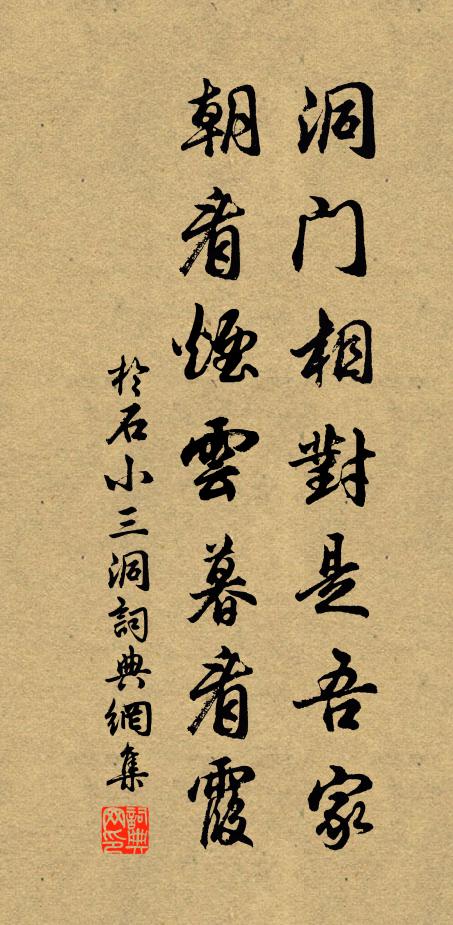 洞门相對是吾家
朝看煙雲暮看霞
於石小三洞詞典網集
詞典网印